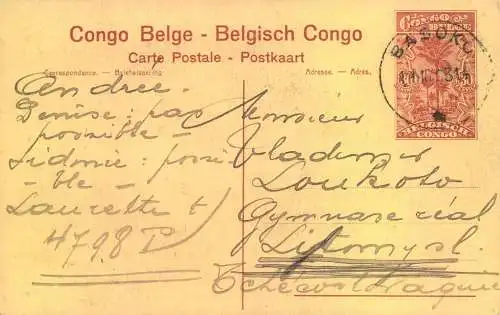 Congo Belge - Belgisch Congo
Carte Postale - Postkaart
Correspondance. - Briefwisseling.
Adresse. - Adres.
CONGO
BELGE
BELGISCH
CONGO
BASOKO
Andree.
Denise: pas
possible -
Sidonie: possi
- ble -
Laurette t
4798 P
Monsieur
Vladimir
Loukoto
Gymnase réal
Litomysl.
Tchécoslovaquie